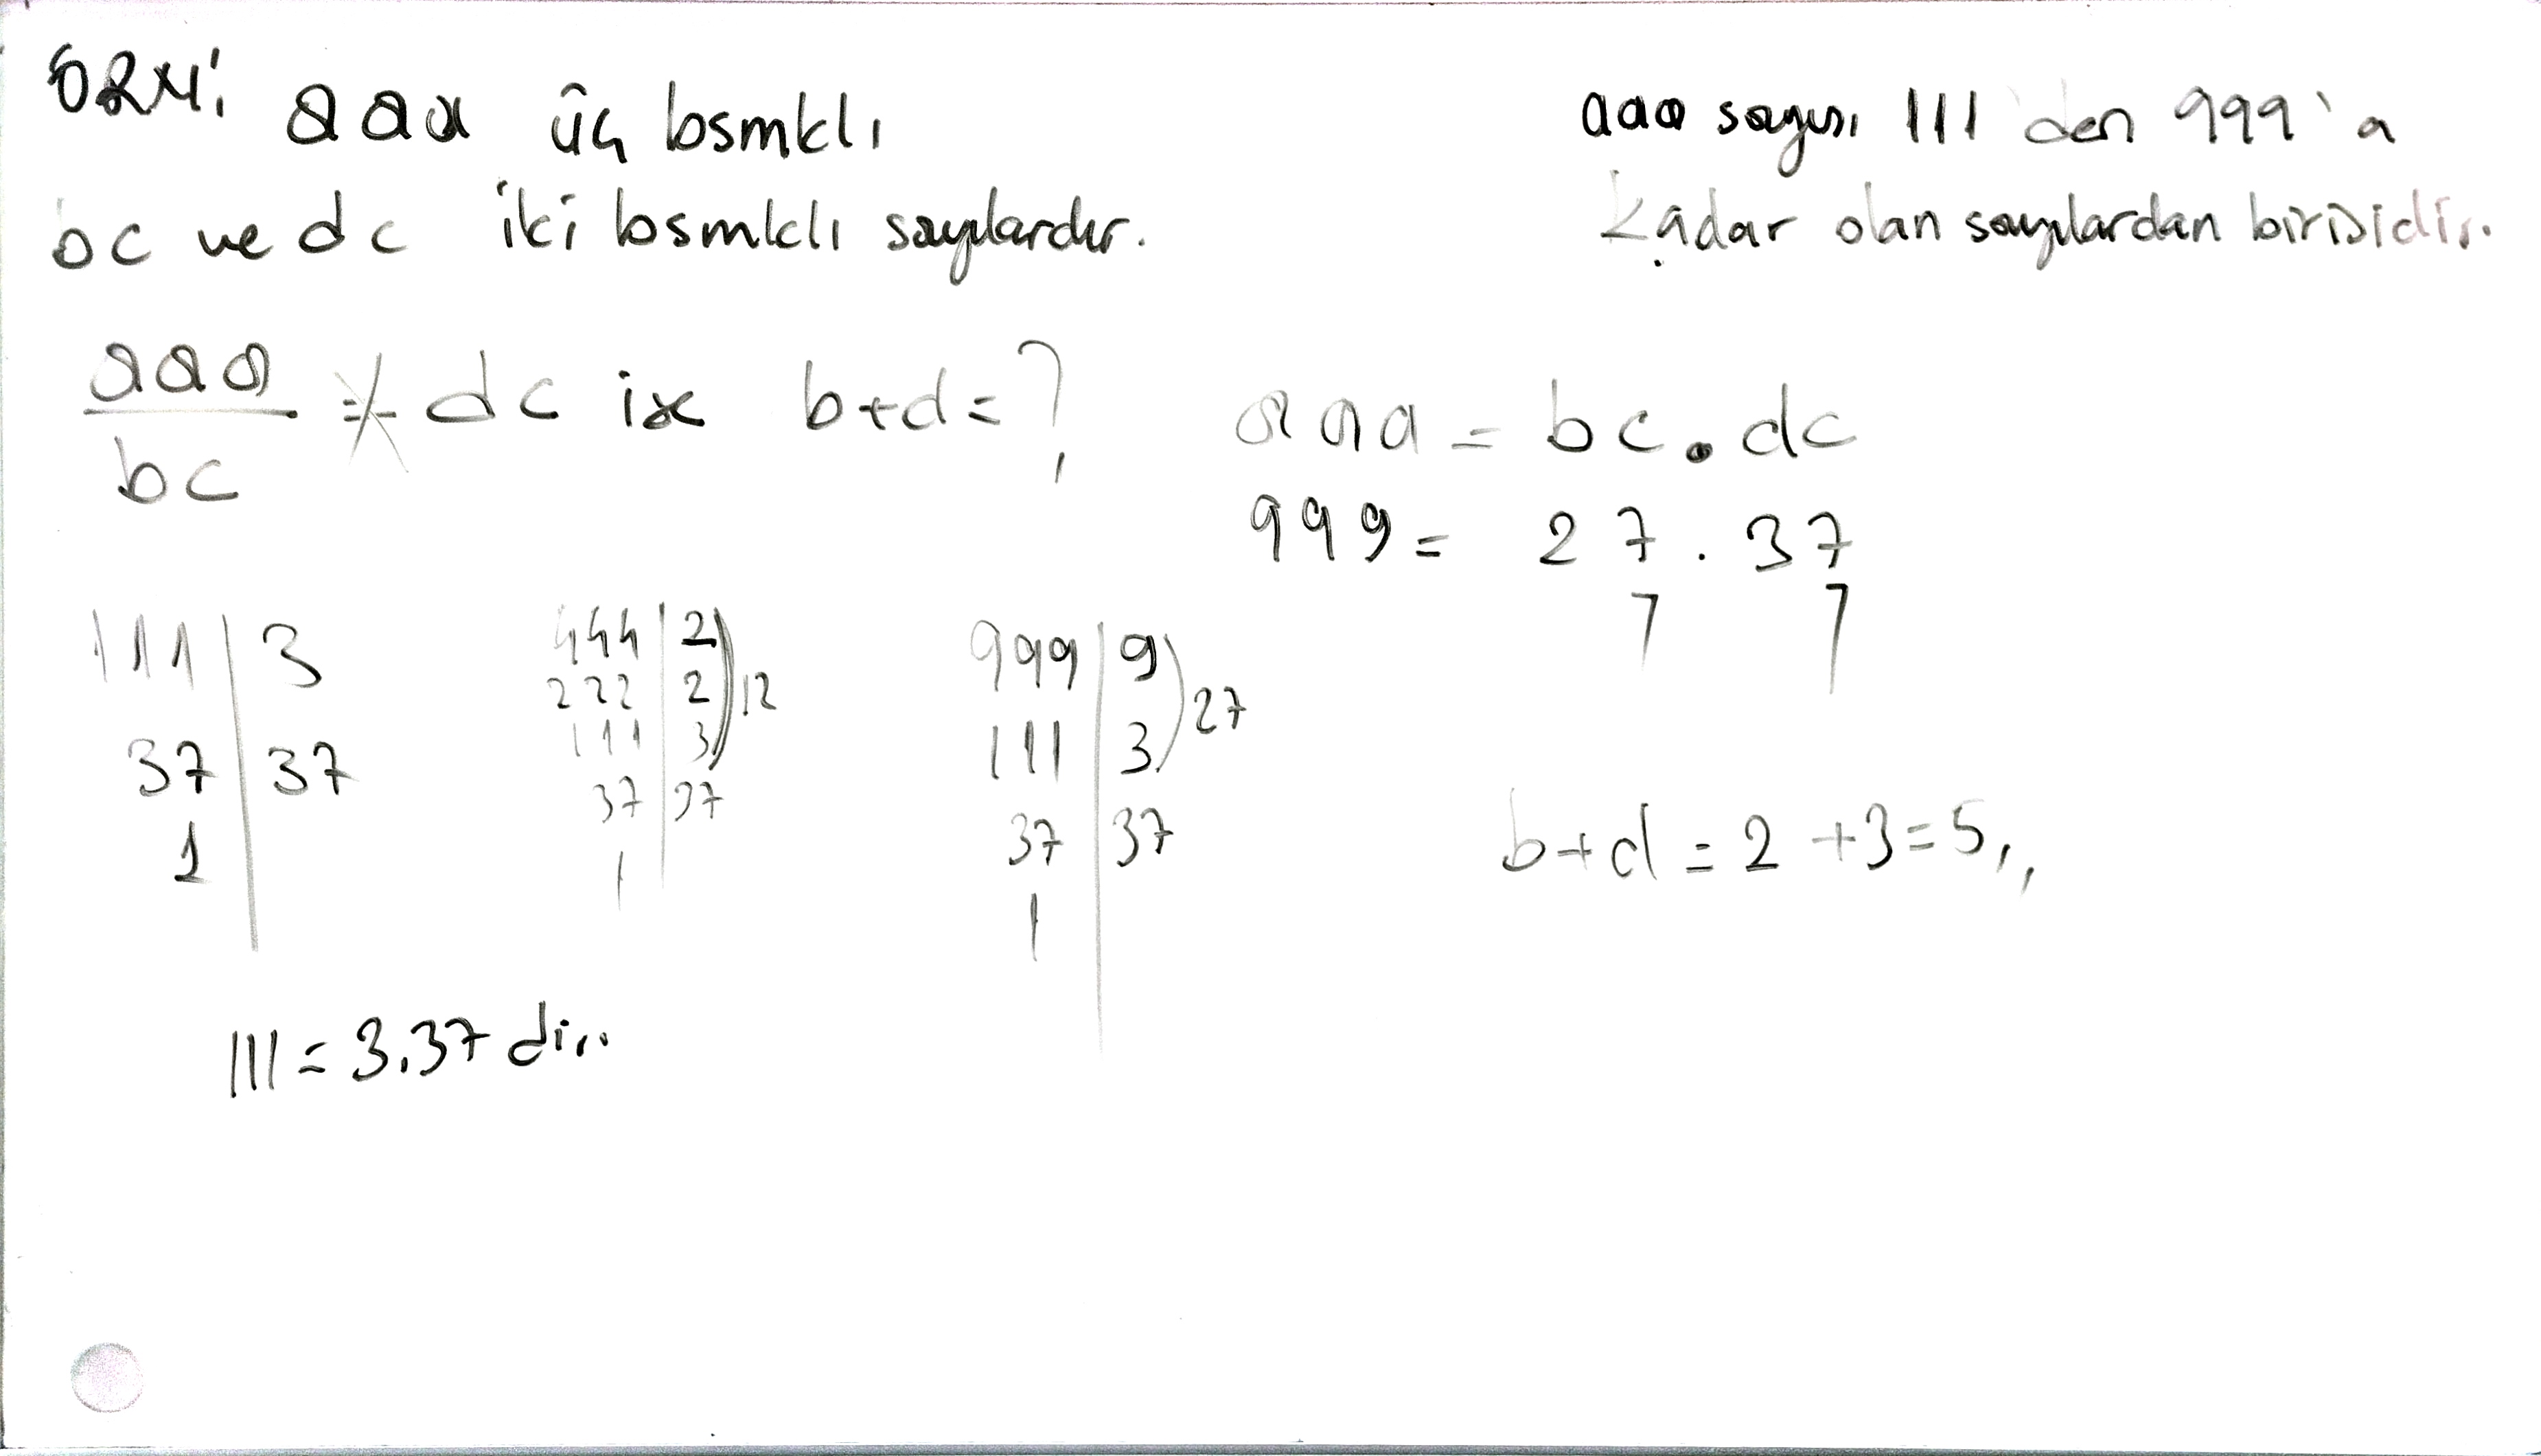 ÖRN:
aaa üç bsmklı
bc ve dc iki bsmklı sayılardır.
aaa / bc = dc ise b+d=?
111 | 3
37 | 37
1
444 | 2
222 | 2 ) 12
111 | 3
37 | 37
1
999 | 9
111 | 3 ) 27
37 | 37
1
111 = 3.37 dir.
aaa sayısı 111'den 999'a
kadar olan sayılardan birisidir.
aaa = bc . dc
999 = 27 . 37
7 7
b+d = 2+3=5,,